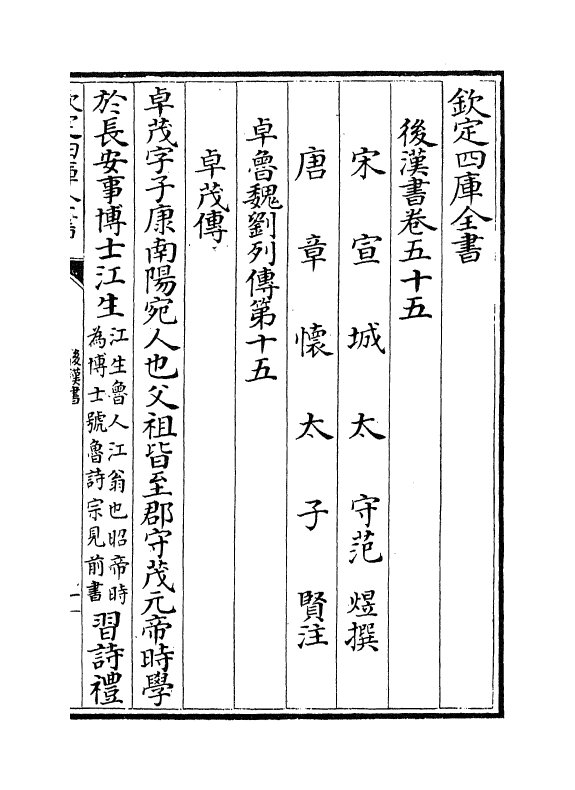 欽定四庫全書
後漢書卷五十五
宋宣城太守范煜撰
唐章懷太子賢注
卓魯魏劉列傳第十五
卓茂傳
卓茂字子康南陽宛人也父祖皆至郡守茂元帝時學
於長安事博士江生江生魯人江翁也昭帝時為博士號魯詩宗見前書習詩禮
後漢書
一